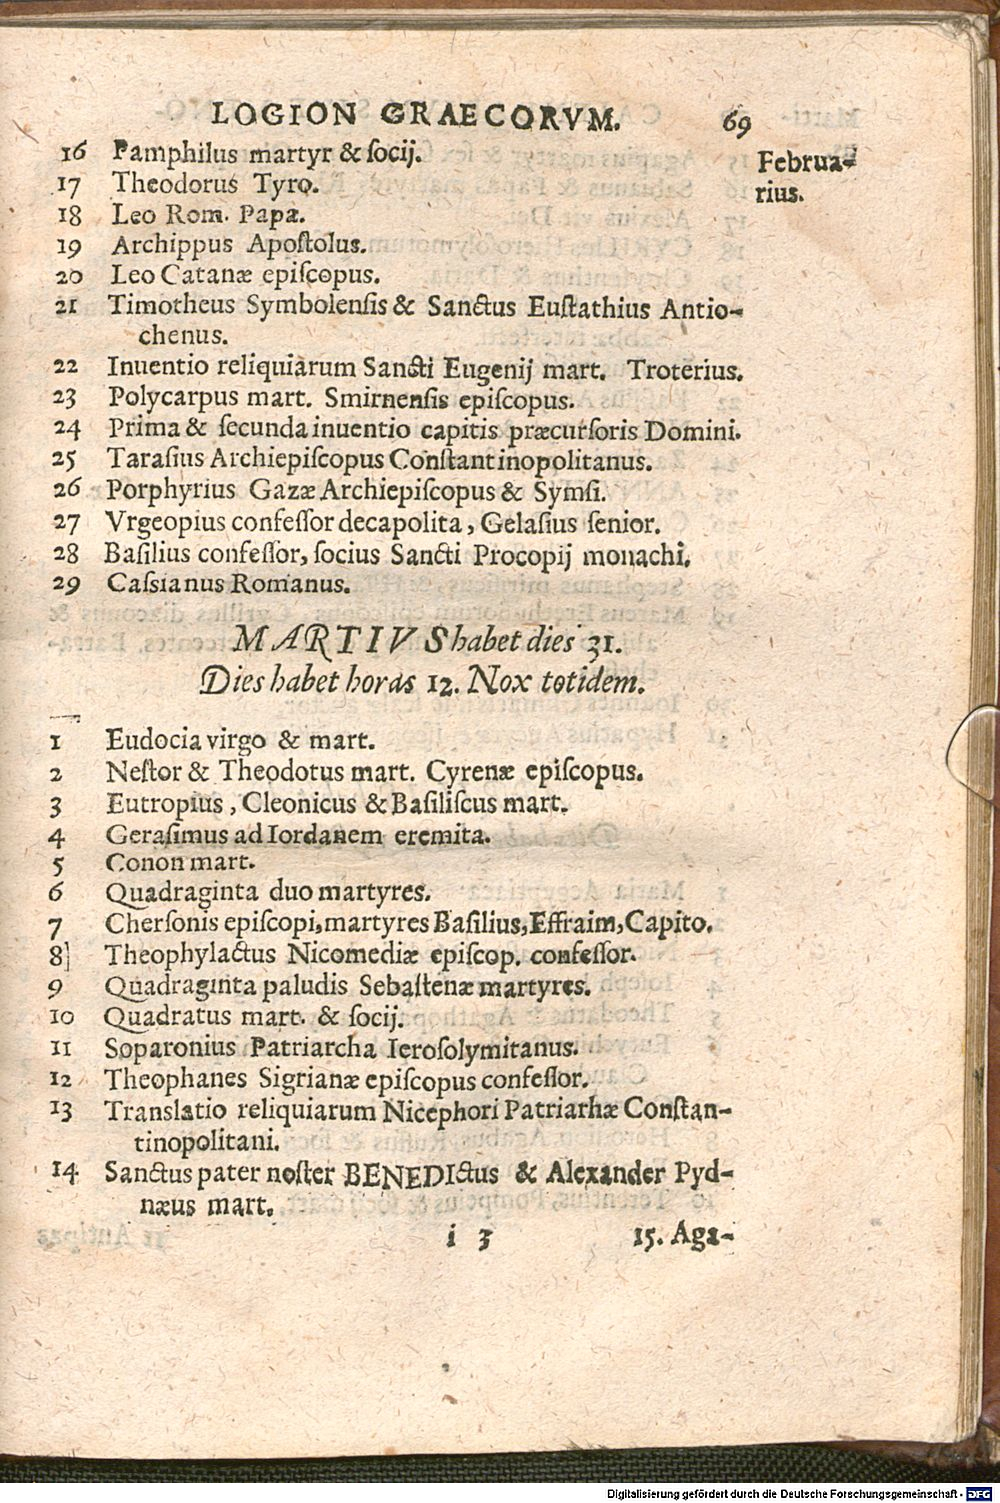 LOGION GRAECORVM. 69
Februa-
rius.
16 Pamphilus martyr & ſocij.
17 Theodorus Tyro.
18 Leo Rom. Papa.
19 Archippus Apoſtolus.
20 Leo Catanæ epiſcopus.
21 Timotheus Symbolenſis & Sanctus Euſtathius Antio-
chenus.
22 Inuentio reliquiarum Sancti Eugenij mart. Troterius.
23 Polycarpus mart. Smirnenſis epiſcopus.
24 Prima & ſecunda inuentio capitis præcurſoris Domini.
25 Taraſius Archiepiſcopus Conſtantinopolitanus.
26 Porphyrius Gazæ Archiepiſcopus & Symſi.
27 Vrgeopius confeſſor decapolita, Gelaſius ſenior.
28 Baſilius confeſſor, ſocius Sancti Procopij monachi.
29 Caſsianus Romanus.
MARTIVS habet dies 31.
Dies habet horas 12. Nox totidem.
1 Eudocia virgo & mart.
2 Neſtor & Theodotus mart. Cyrenæ epiſcopus.
3 Eutropius, Cleonicus & Baſiliſcus mart.
4 Geraſimus ad Iordanem eremita.
5 Conon mart.
6 Quadraginta duo martyres.
7 Cherſonis epiſcopi, martyres Baſilius, Effraim, Capito.
8 Theophylactus Nicomediæ epiſcop. confeſſor.
9 Quadraginta paludis Sebaſtenæ martyres.
10 Quadratus mart. & ſocij.
11 Soparonius Patriarcha Ieroſolymitanus.
12 Theophanes Sigrianæ epiſcopus confeſſor.
13 Translatio reliquiarum Nicephori Patriarhæ Conſtan-
tinopolitani.
14 Sanctus pater noſter BENEDIctus & Alexander Pyd-
næus mart.
i 3 15. Aga-
Digitalisierung gefördert durch die Deutsche Forschungsgemeinschaft - DFG